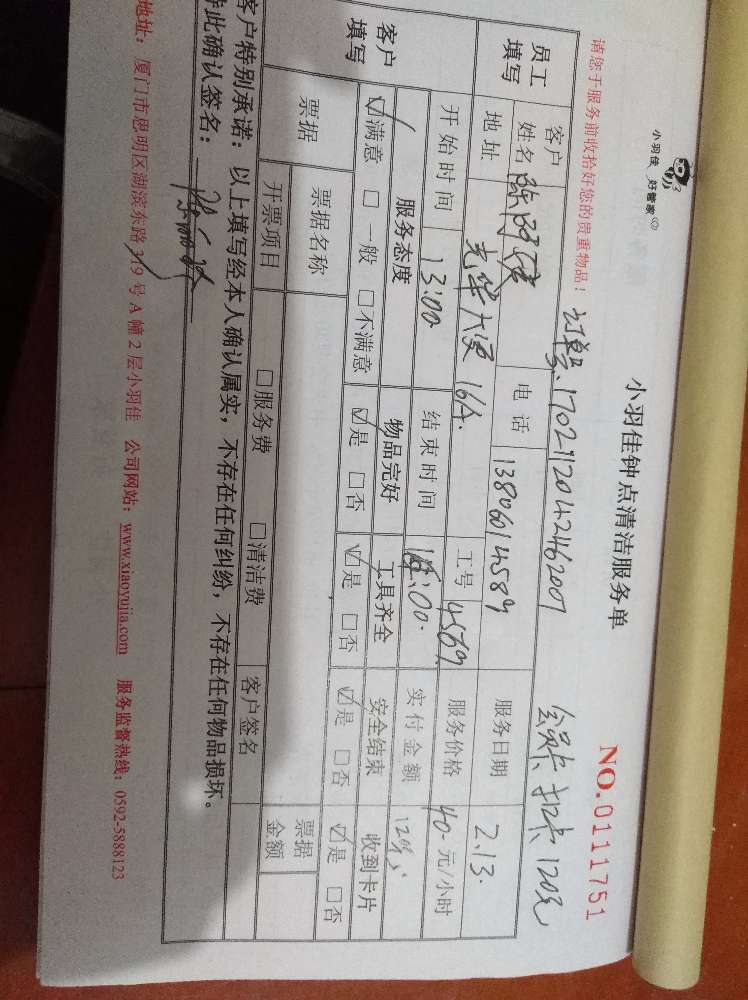 小羽佳 好管家
小羽佳钟点清洁服务单
NO.0111751
请您于服务前收拾好您的贵重物品！ 订单号.1702112042462007 会员卡 扣卡 120元
员工填写 客户姓名 电话 13806014589 服务日期 2.13.
地址 光华大厦 16A. 工号 4569 服务价格 40 元/小时
开始时间 13:00 结束时间 :00. 实付金额 120
客户填写 服务态度 物品完好 工具齐全 安全结束 收到卡片
☑满意 □一般 □不满意 ☑是 □否 ☑是 □否 ☑是 □否 ☑是 □否
票据 票据名称 票据金额
开票项目 □服务费 □清洁费 客户签名
客户特别承诺：以上填写经本人确认属实，不存在任何纠纷，不存在任何物品损坏。
特此确认签名：
地址：厦门市思明区湖滨东路319号A幢2层小羽佳 公司网站：www.xiaoyujia.com 服务监督热线：0592-5888123